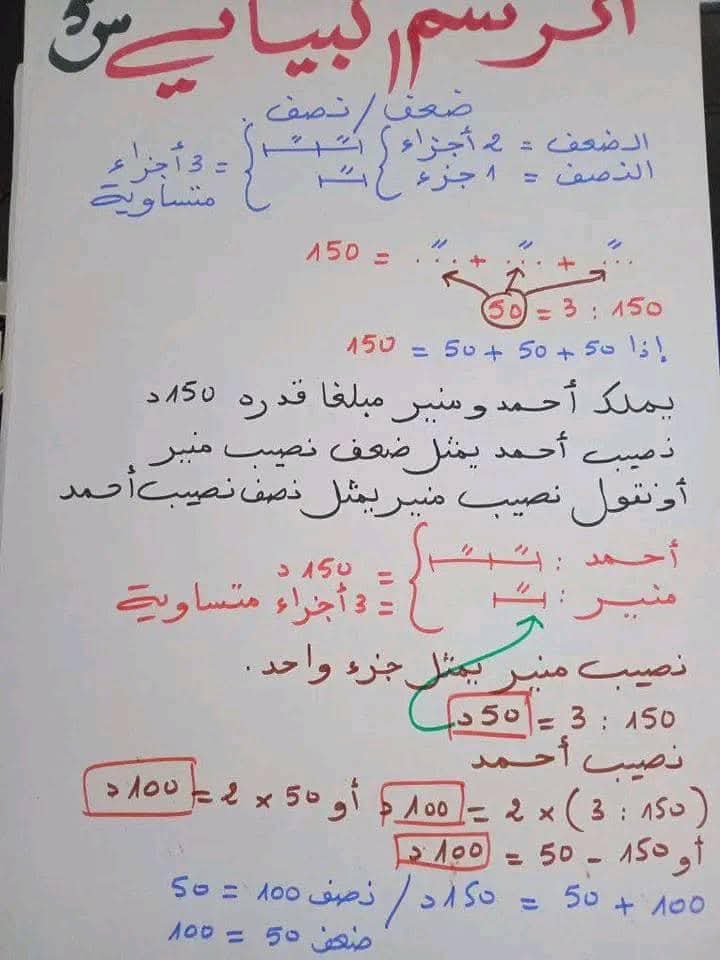 الرسم البياني س5
ضعف / نصف .
الضعف = 2 أجزاء
النصف = 1 جزء
= 3 أجزاء
متساوية
..... + ..... + ..... = 150
150 : 3 = 50
إذا 50 + 50 + 50 = 150
يملك أحمد و منير مبلغا قدره 150د
نصيب أحمد يمثل ضعف نصيب منير
أو نقول نصيب منير يمثل نصف نصيب أحمد
أحمد :
منير :
= 150 د
= 3 أجزاء متساوية
نصيب منير يمثل جزء واحد .
150 : 3 = 50 د
نصيب أحمد
(150 : 3) × 2 = 100 د أو 50 × 2 = 100 د
أو 150 - 50 = 100 د
100 + 50 = 150 د / نصف 100 = 50
ضعف 50 = 100